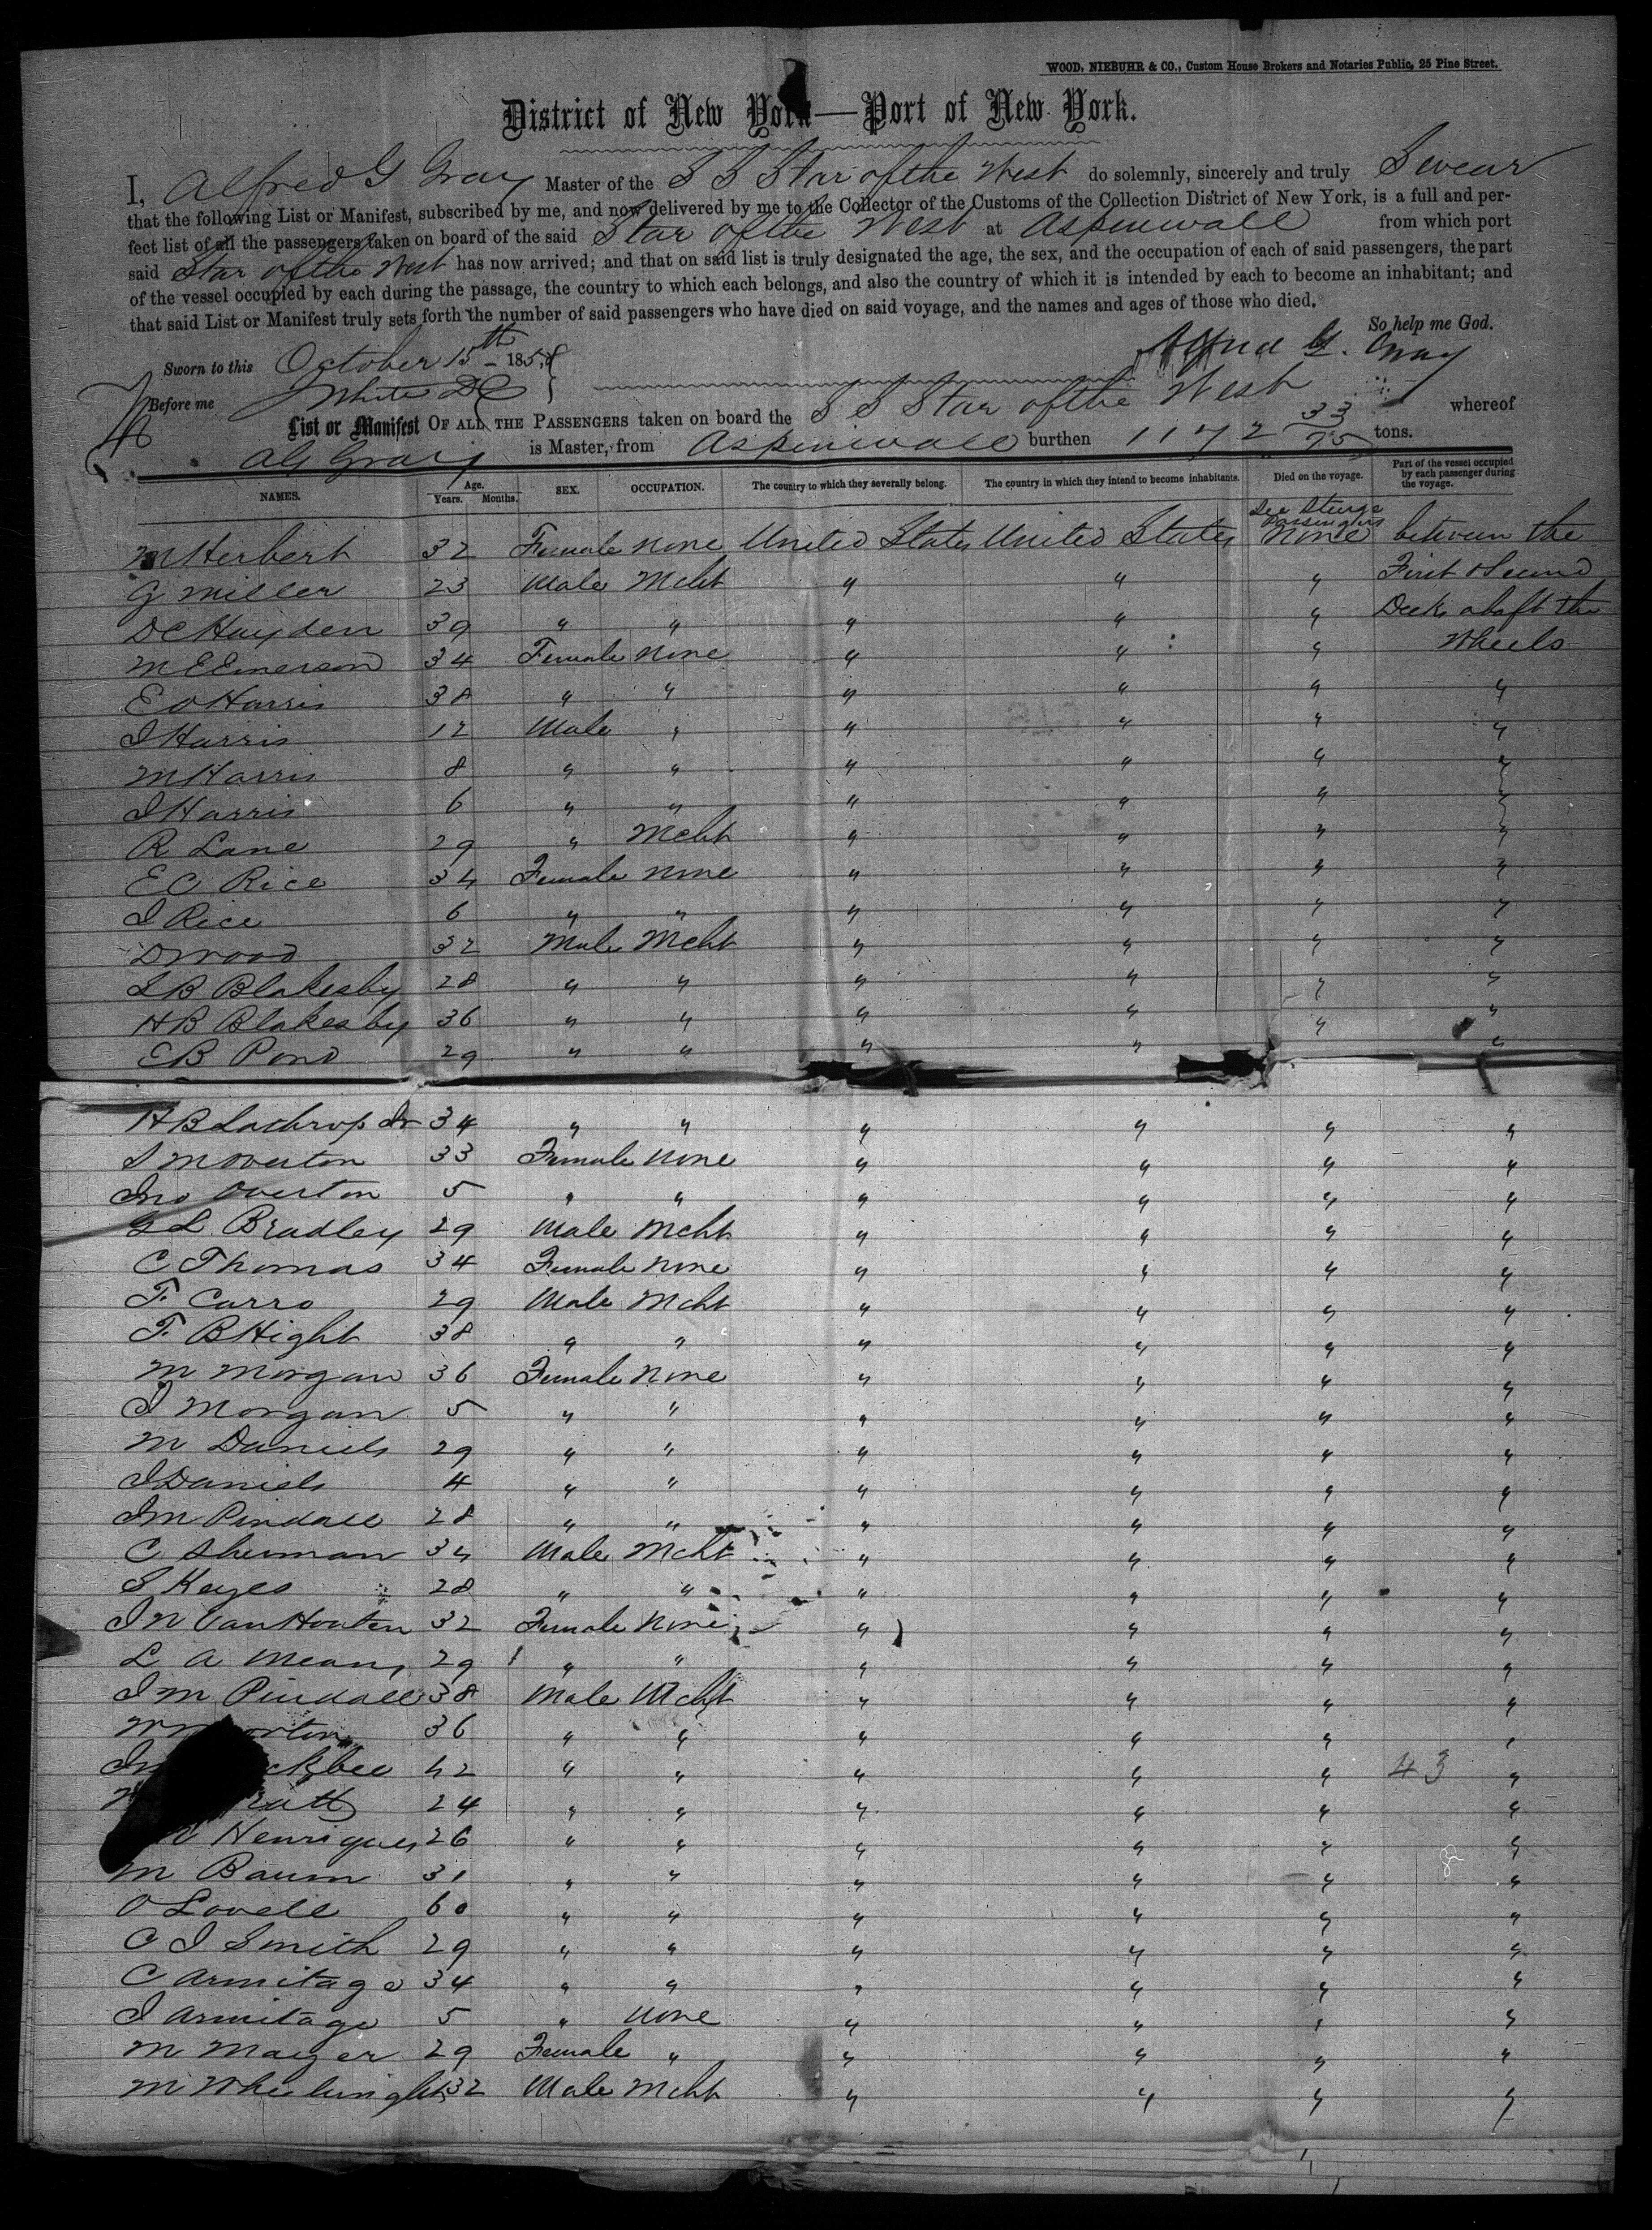 WOOD, NIEBUHR & CO., Custom House Brokers and Notaries Public, 25 Pine Street.
District of New York—Port of New York.
I, Alfred G Gray Master of the S S Star of the West do solemnly, sincerely and truly Swear
that the following List or Manifest, subscribed by me, and now delivered by me to the Collector of the Customs of the Collection District of New York, is a full and per-
fect list of all the passengers taken on board of the said Star of the West at Aspinwall from which port
said Star of the West has now arrived; and that on said list is truly designated the age, the sex, and the occupation of each of said passengers, the part
of the vessel occupied by each during the passage, the country to which each belongs, and also the country of which it is intended by each to become an inhabitant; and
that said List or Manifest truly sets forth the number of said passengers who have died on said voyage, and the names and ages of those who died.
So help me God.
Sworn to this October 15th 1858 Alfred G. Gray
Before me White
List or Manifest OF ALL THE PASSENGERS taken on board the S S Star of the West whereof
AG Gray is Master, from Aspinwall burthen 1172 33/95 tons.
NAMES. Age. Years. Months. SEX. OCCUPATION. The country to which they severally belong. The country in which they intend to become inhabitants. Died on the voyage. Part of the vessel occupied by each passenger during the voyage.
See Steerge Passengers
M Herbert 32 Female None United States United States None between the
G Miller 23 Male Mcht " " " First & Second
D C Hayden 39 " " " " " Deck abaft the
M E Emerson 34 Female None " " " Wheels
E O Harris 38 " " " " " "
I Harris 12 Male " " " " "
M Harris 8 " " " " " "
I Harris 6 " " " " " "
R Lane 29 " Mcht " " " "
E C Rice 34 Female None " " " "
I Rice 6 " " " " " "
D Wood 32 Male Mcht " " " "
L B Blakesby 28 " " " " " "
H B Blakesby 36 " " " " " "
E B Pond 29 " " " " " "
H B Lathrop Jr 34 " " " " " "
S M Overton 33 Female None " " " "
Jno Overton 5 " " " " " "
G L Bradley 29 Male Mcht " " " "
C Thomas 34 Female None " " " "
F. Carro 29 Male Mcht " " " "
F. B Hight 38 " " " " " "
M Morgan 36 Female None " " " "
I Morgan 5 " " " " " "
M Daniels 29 " " " " " "
I Daniels 4 " " " " " "
I M Pindall 28 " " " " " "
C Sherman 34 Male Mcht " " " "
S Keyes 28 " " " " " "
I N Van Houten 32 Female None " " " "
L A Means 29 " " " " " "
I M Pindall 38 Male Mcht " " " "
orton 36 " " " " " "
ckbee 42 " " " " 43 "
ratt 24 " " " " " "
Henriques 26 " " " " " "
M Baum 31 " " " " " "
O Lovell 60 " " " " " "
C I Smith 29 " " " " " "
C Armitage 34 " " " " " "
I Armitage 5 " None " " " "
M Mayer 29 Female " " " " "
M Wheelwright 32 Male Mcht " " " "